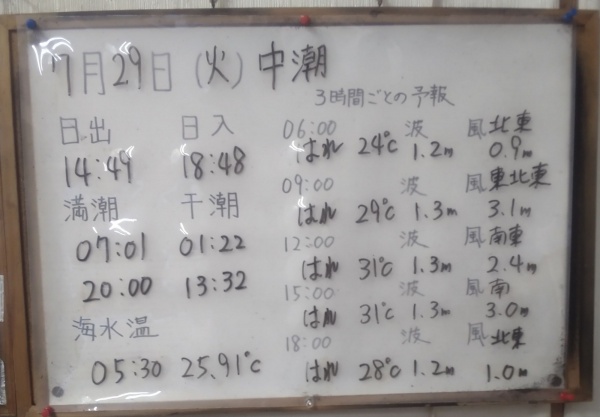 7月29日(火)中潮
3時間ごとの予報
日出 日入
14:49 18:48
満潮 干潮
07:01 01:22
20:00 13:32
海水温
05:30 25.91℃
06:00 波 風 北東
はれ 24℃ 1.2m 0.9m
09:00 波 風 東北東
はれ 29℃ 1.3m 3.1m
12:00 波 風 南東
はれ 31℃ 1.3m 2.4m
15:00 波 風 南
はれ 31℃ 1.3m 3.0m
18:00 波 風 北東
はれ 28℃ 1.2m 1.0m